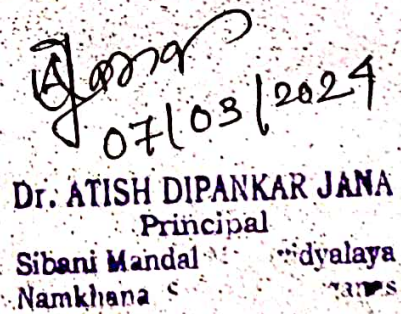 07/03/2024
Dr. ATISH DIPANKAR JANA
Principal
Sibani Mandal
Namkhana